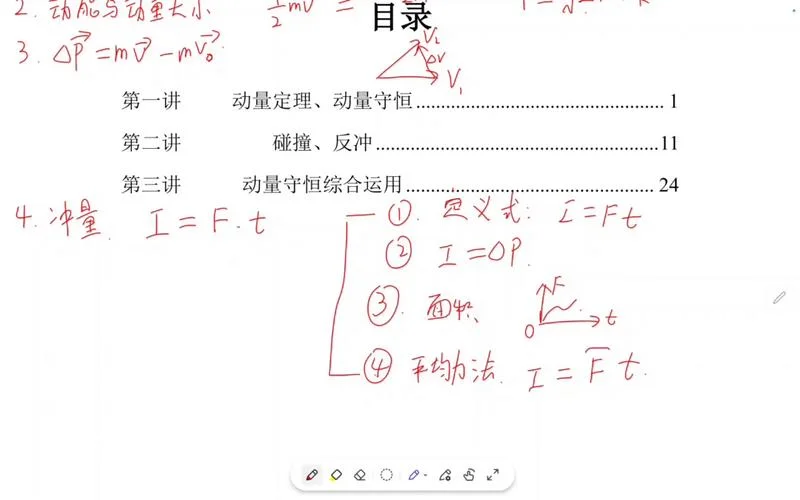 2. 动能与动量大小 ½mv² =
目录
3. ΔP⃗ = mv⃗ - mv⃗₀
V₂
ΔV
V₁
第一讲 动量定理、动量守恒 1
第二讲 碰撞、反冲 11
第三讲 动量守恒综合运用 24
4. 冲量 I = F·t
① 定义式: I = Ft
② I = ΔP.
③. 面积
F
O
t
④ 平均力法. I = F̅ t.